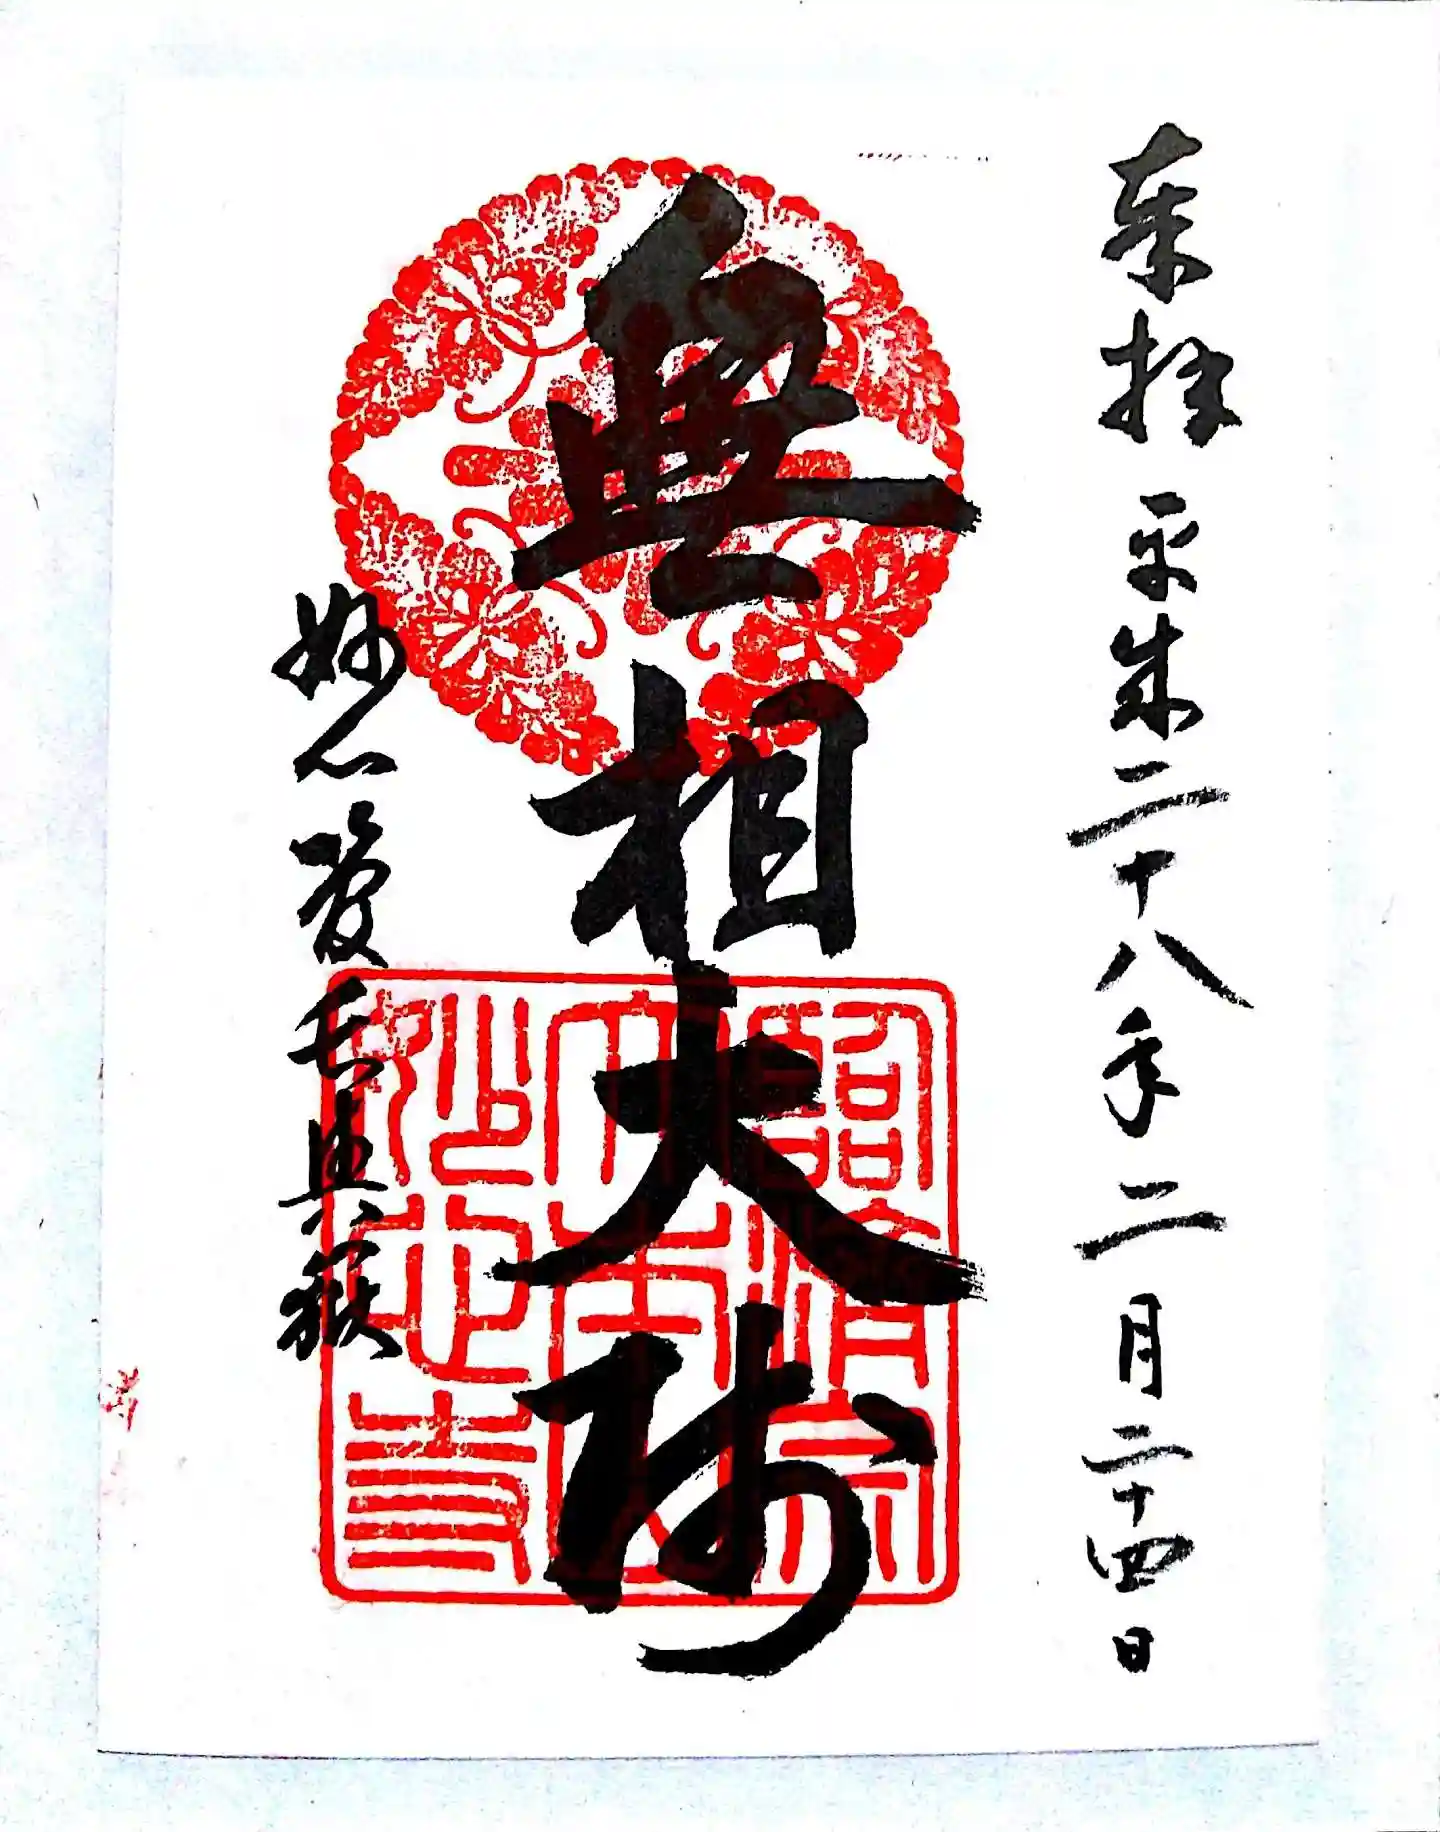 奉拝 平成二十八年二月二十四日
無相大師
妙心管長興嶽
臨済宗
大本山
妙心寺